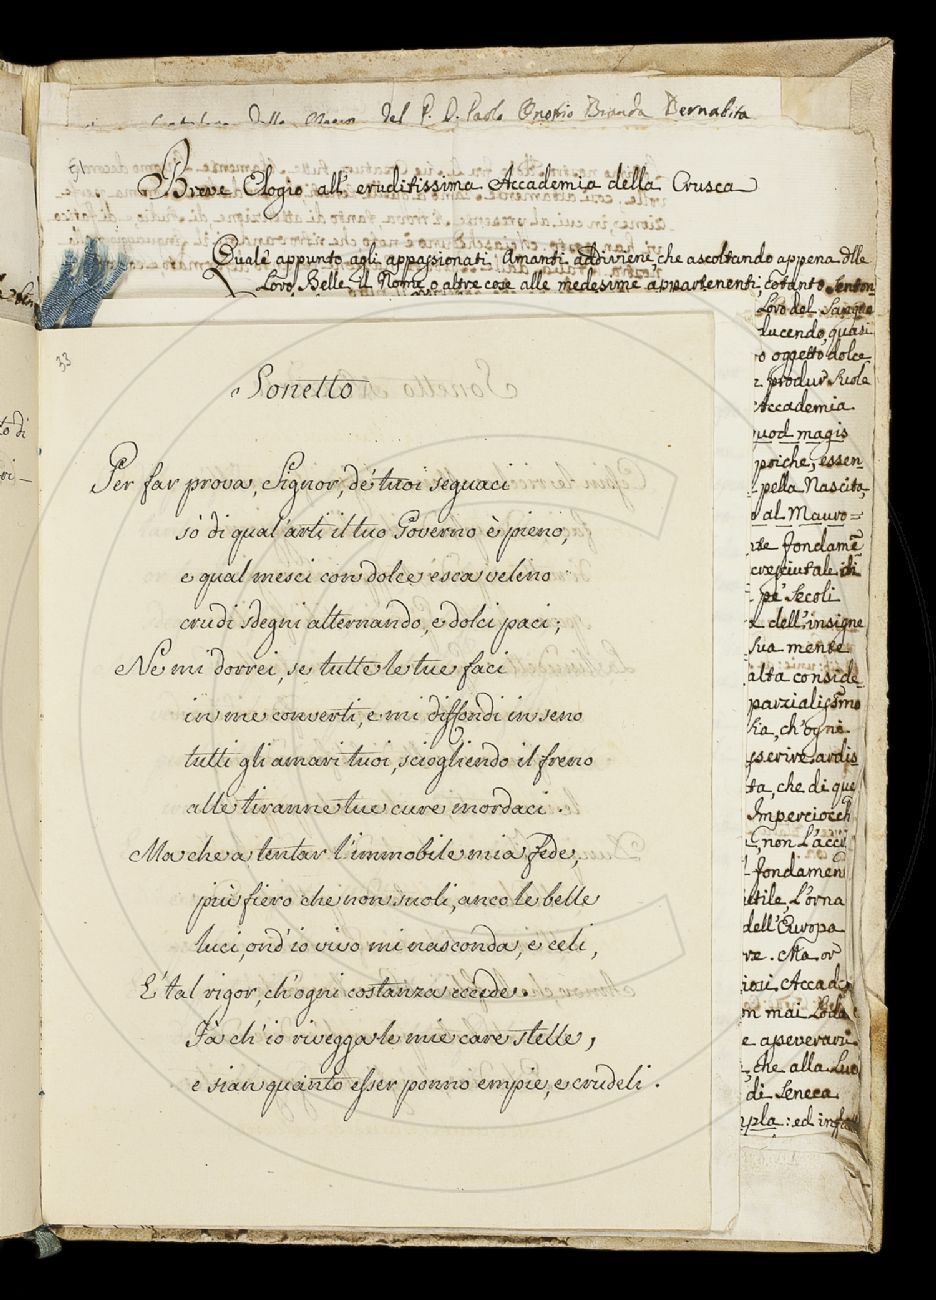 Catalogo delle Opere del P. D. Paolo Onofrio Branda Bernabita
51
Breve Elogio all' eruditissima Accademia della Crusca
Quale appunto agli appassionati Amanti addiviene, che ascoltando appena dlle
Loro Belle il Nome, o altre cose alle medesime appartenenti, cotanto senton
Loro del Sangue
lucendo, quasi
o oggetto dolce
produr suole
Accademia
quod magis
poiche, essen
pella Nascita,
al Mauro=
te fondamẽ
cresciutale di
pe' secoli
dell' insigne
sua mente
alta conside
parzialissimo
sia, ch'ogni
sserire ardis
ta, che di que
Imperciocch
non l'acci
fondamen
utile, l'orna
dell' Europa
re. Ma or
iosi Accade
n mai Loda
e apeverari
che alla Luc
di Seneca
mpla: ed infa
33
Sonetto
Per far prova, Signor, de' tuoi seguaci
so di qual'arti il tuo Governo è pieno,
e qual mesci con dolce esca veleno
crudi sdegni alternando, e dolci paci;
Ne mi dorrei, se tutte le tue faci
in me converti, e mi diffondi in seno
tutti gli amari tuoi, sciogliendo il freno
alle tiranne tue cure mordaci.
Ma che a tentar l'immobile mia Fede,
più fiero che non suoli, anco le belle
luci, ond'io vivo mi nasconda, e celi,
E' tal rigor, ch'ogni costanza eccede.
Fà ch'io rivegga le mie care stelle,
e sian quanto esser ponno empie, e crudeli.
to di
ri_